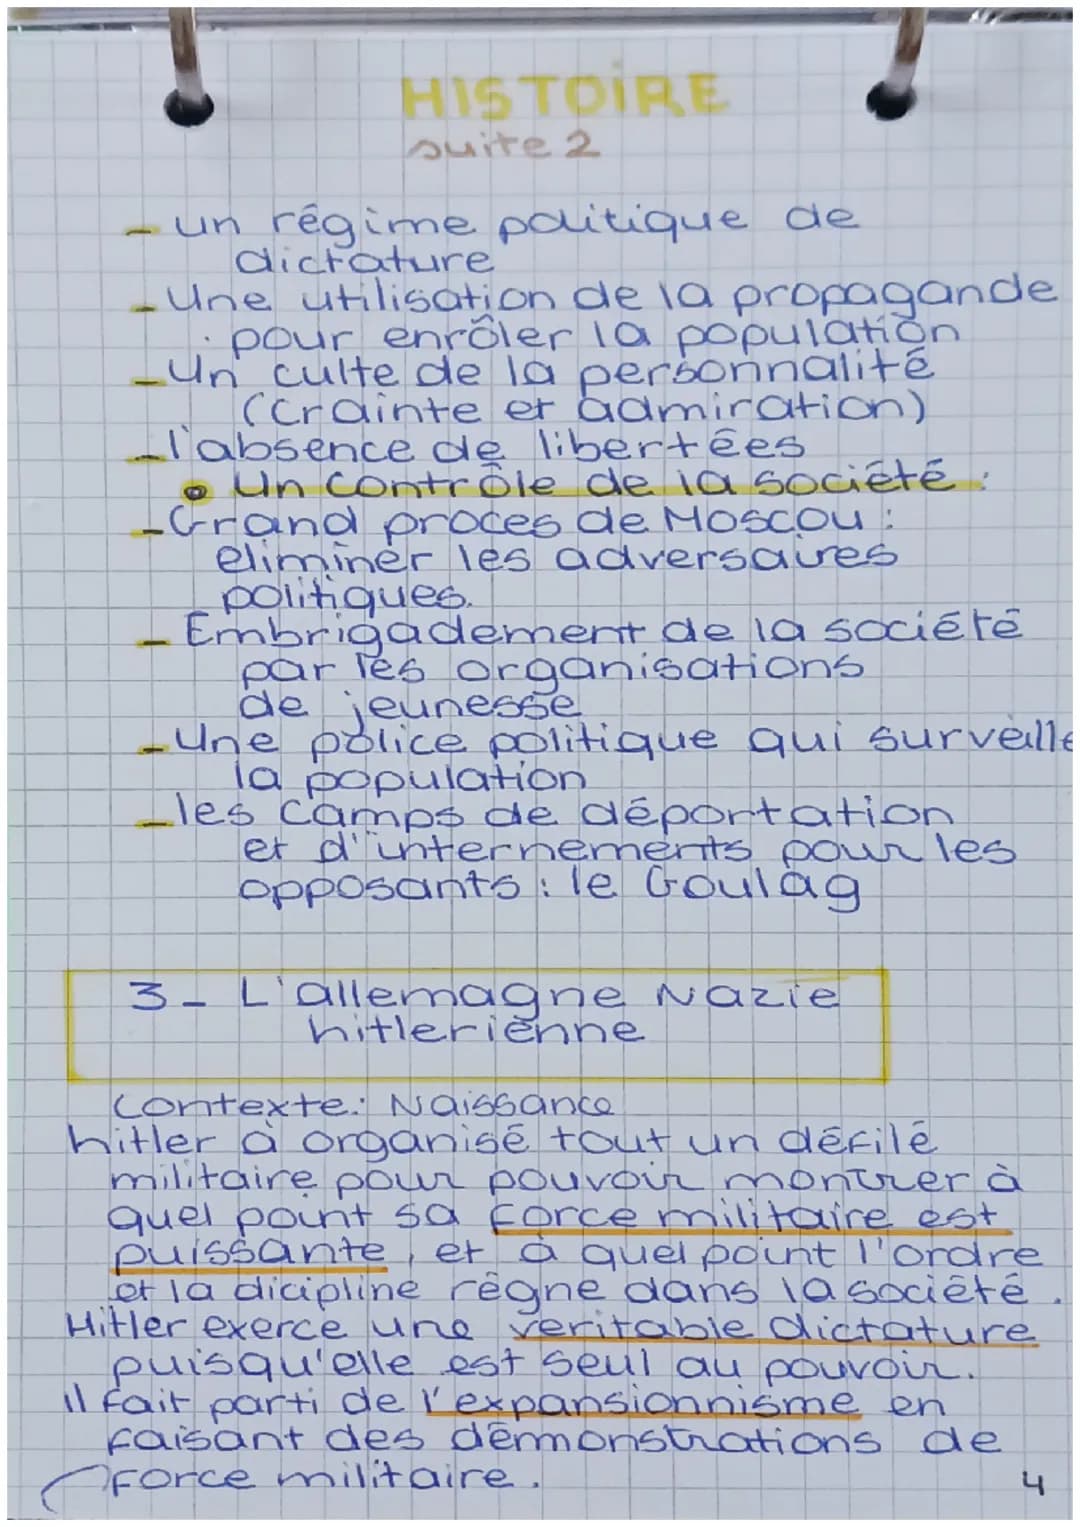 HISTOIRE
suite 2
- un régime politique de
dictature
- Une utilisation de la propagande
pour enrôler la population
- Un culte de la personnalité
(crainte et admiration)
- l'absence de libertées
• Un contrôle de la société :
- Grand proces de Moscou :
eliminer les adversaires
politiques.
- Embrigadement de la société
par les organisations
de jeunesse
- Une police politique qui surveille
la population
- les camps de déportation
et d'internements pour les
opposants : le Goulag
3 - L'allemagne Nazie
hitlerienne
Contexte : Naissance
hitler à organisé tout un défilé
militaire pour pouvoir montrer à
quel point sa force militaire est
puissante, et à quel point l'ordre
et la dicipline règne dans la société.
Hitler exerce une veritable dictature
puisqu'elle est seul au pouvoir.
il fait parti de l'expansionnisme en
faisant des démonstrations de
force militaire.
4